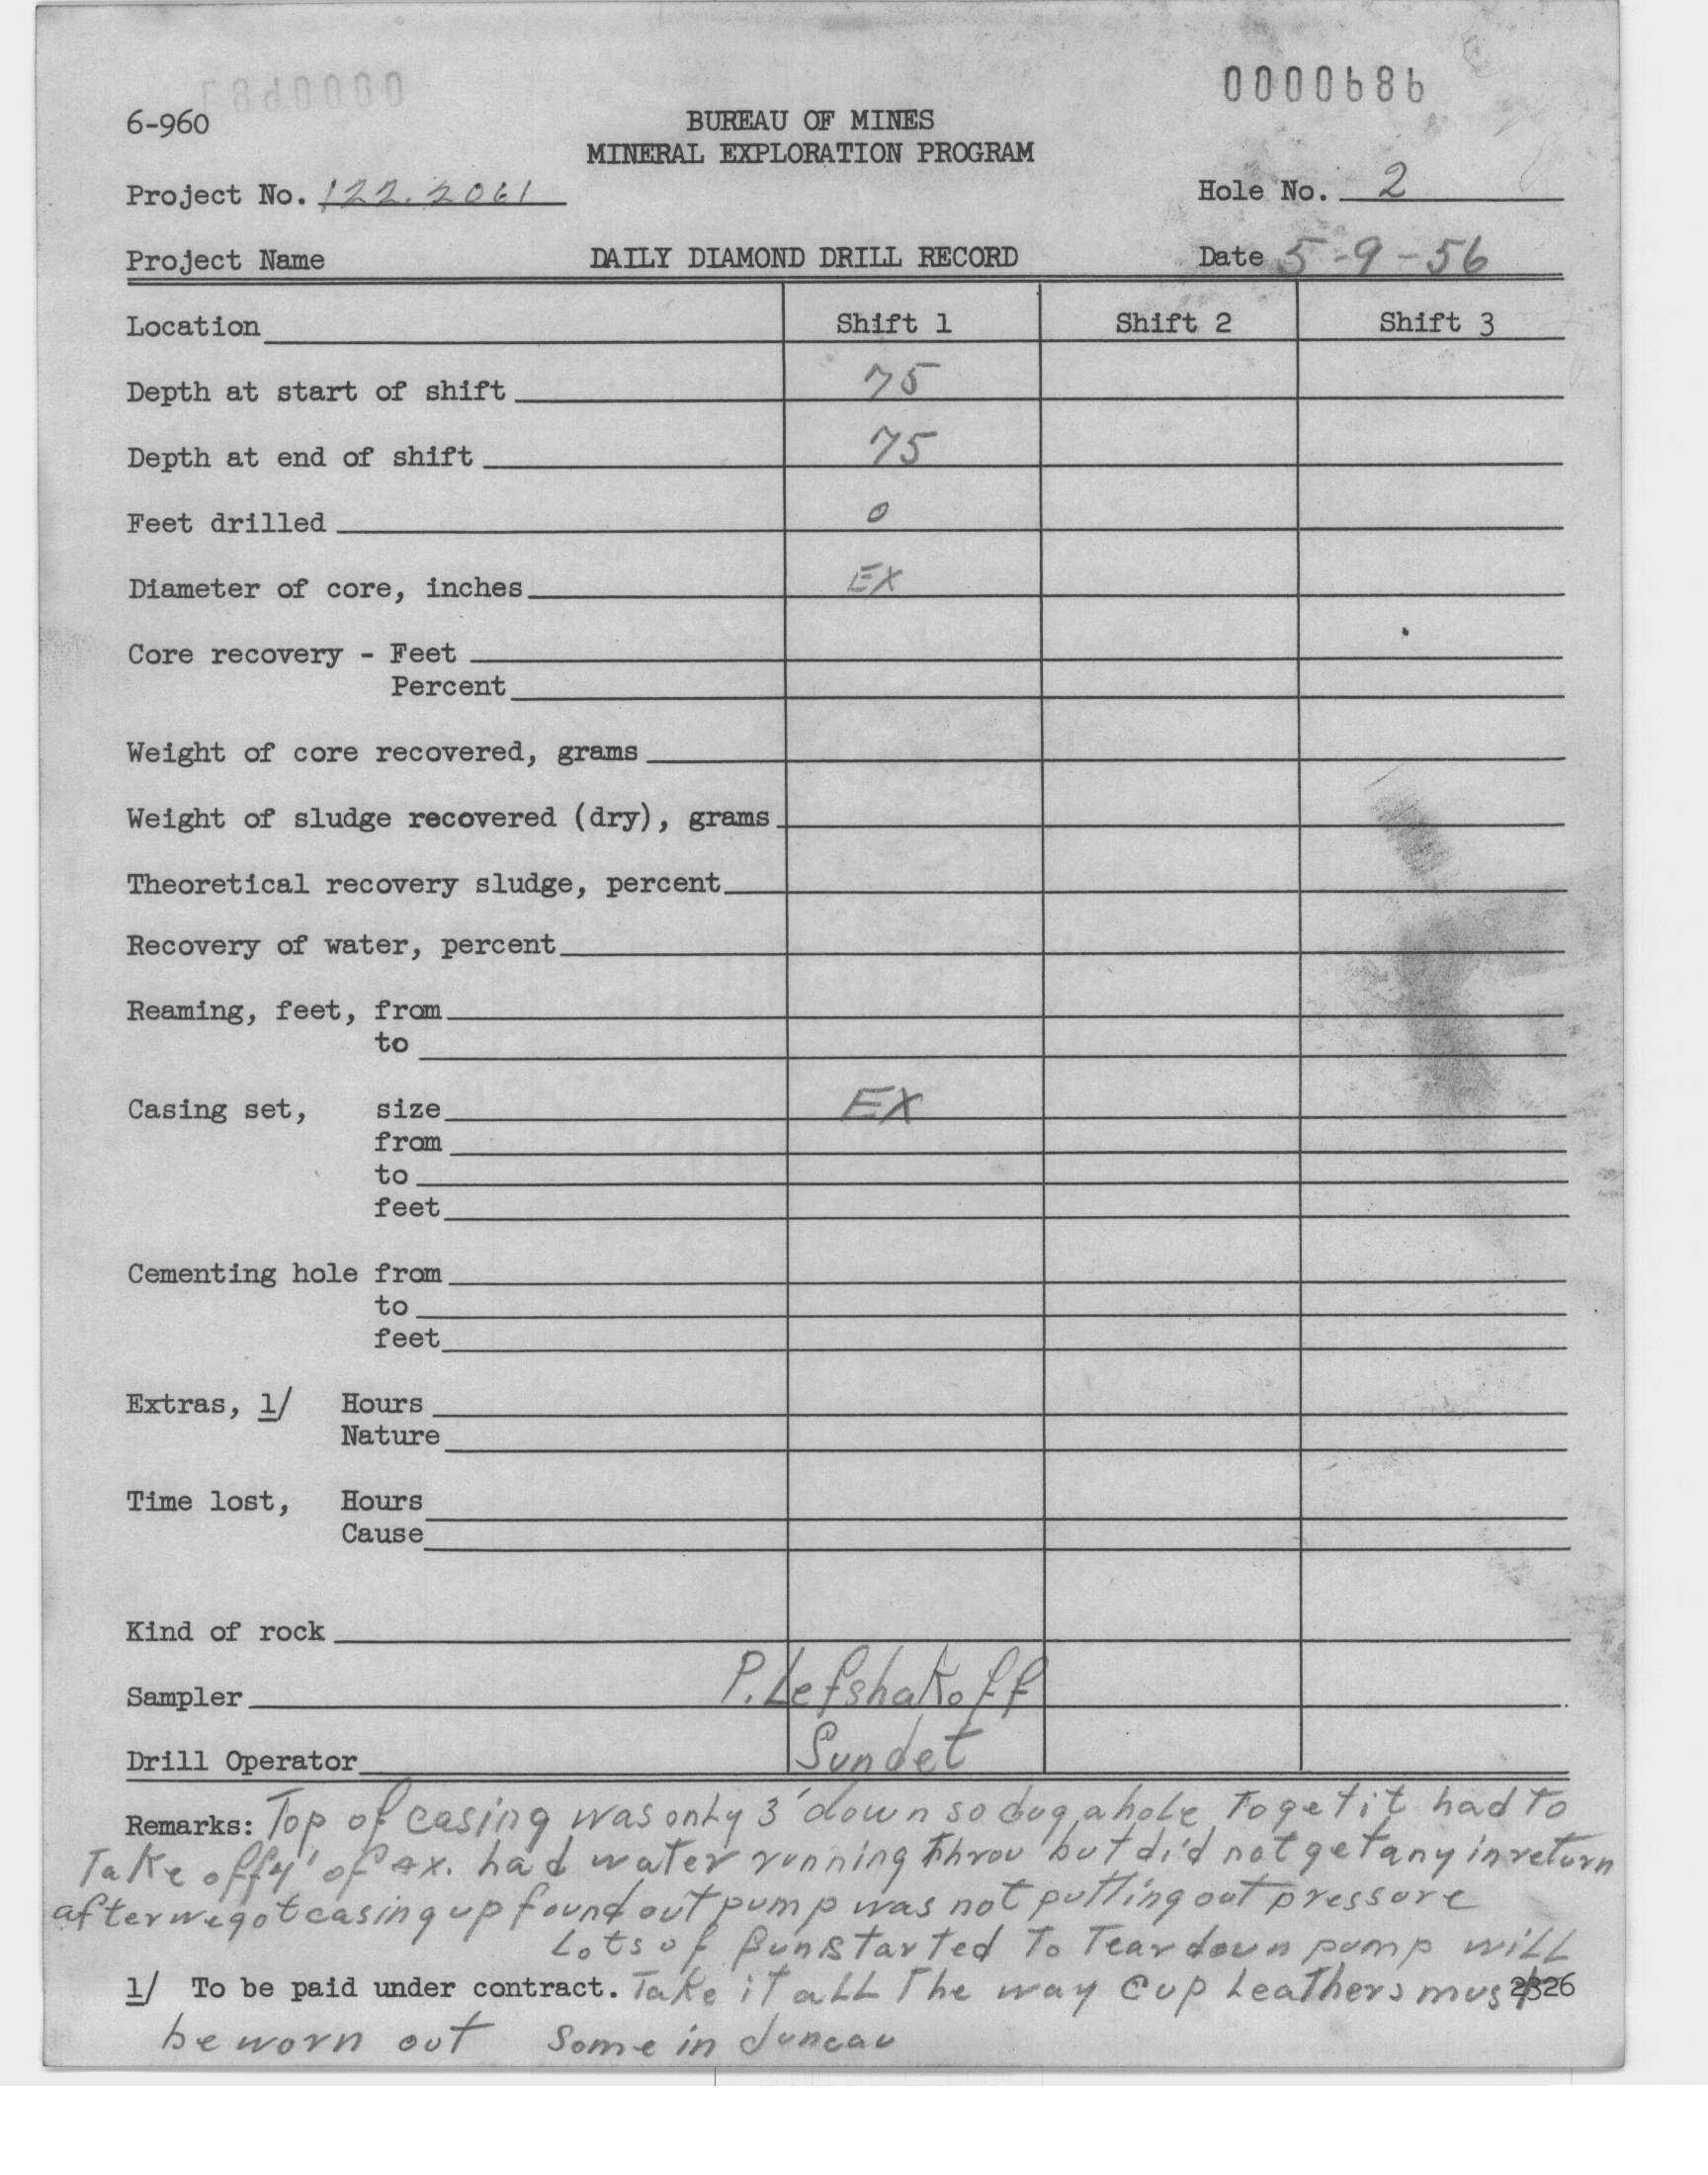 0000686
6-960
BUREAU OF MINES
MINERAL EXPLORATION PROGRAM
Project No. 122.2061
Hole No. 2
Project Name
DAILY DIAMOND DRILL RECORD
Date 5-9-56
Location Shift 1 Shift 2 Shift 3
Depth at start of shift 75
Depth at end of shift 75
Feet drilled 0
Diameter of core, inches EX
Core recovery - Feet
Percent
Weight of core recovered, grams
Weight of sludge recovered (dry), grams
Theoretical recovery sludge, percent
Recovery of water, percent
Reaming, feet, from
to
Casing set, size EX
from
to
feet
Cementing hole from
to
feet
Extras, 1/ Hours
Nature
Time lost, Hours
Cause
Kind of rock
Sampler P. Lefshakoff
Drill Operator Sundet
Remarks: Top of casing was only 3' down so dug a hole To get it had to
Take off 4' of ex. had water running throu but did not get any in return
after we got casing up found out pump was not putting out pressure
Lots of fun started To Tear down pump will
1/ To be paid under contract. Take it all The way Cup Leathers must 2326
be worn out Some in Juneau